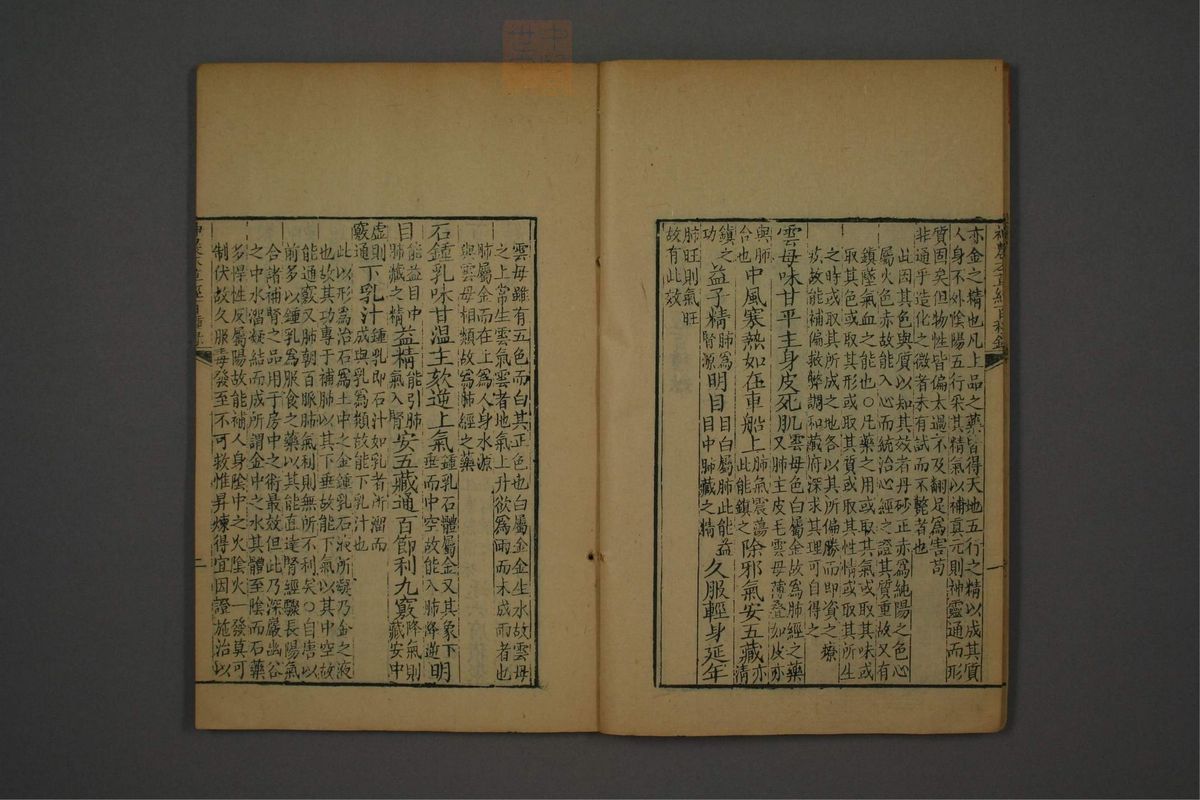 亦金之精也凡上品之藥皆得天地五行之精以成其質
人身不外陰陽五行采其精氣以補真元則神靈通而形
質固矣但物性皆偏太過不及翻足爲害苟
非通乎造化之微者未有試而不斃者也
此因其色與質以知其效者丹砂正赤爲純陽之色心
屬火色赤故能入心而統治心經之證其質重故又有
鎮墜氣血之能也○凡藥之用或取其氣或取其味或
取其色或取其形或取其質或取其性情或取其所生
之時或取其所成之地各以其所偏勝而即資之療
疾故能補偏救弊調和藏府深求其理可自得之
雲母味甘平主身皮死肌雲母色白屬金故爲肺經之藥又肺主皮毛雲母薄疊如皮亦
與肺合也中風寒熱如在車船上肺氣震蕩此能鎮之除邪氣安五藏亦清
鎮之功益子精肺爲腎源明目目白屬肺此能益目中肺藏之精久服輕身延年
肺旺則氣旺故有此效
雲母雖有五色而白其正色也白屬金金生水故雲母
之上常生雲氣雲者地氣上升欲爲雨而未成雨者也
肺屬金而在上爲人身水源
與雲母相類故爲肺經之藥
石鍾乳味甘溫主欬逆上氣鍾乳石體屬金又其象下垂而中空故能入肺降逆明
目能益目中肺藏之精益精能引肺氣入腎安五藏通百節利九竅降氣則藏安中
虛則竅通下乳汁鍾乳即石汁如乳者所溜而成與乳爲類故能下乳汁也
此以形爲治石爲土中之金鍾乳石液所凝乃金之液
也故其功專于補肺以其下垂故能下氣以其中空故
能通竅又肺朝百脈肺氣利則無所不利矣○自唐以
前多以鍾乳爲服食之藥以其能直達腎經驟長陽氣
合諸補腎之品用于房中之術最效但此乃深巖幽谷
之中水溜凝結而成所謂金中之水其體至陰而石藥
多悍性反屬陽故能補人身陰中之火陰火一發莫可
制伏故久服毒發至不可救惟昇煉得宜因證施治以